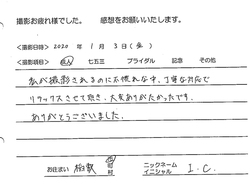 撮影お疲れ様でした。 感想をお願いいたします。
<撮影日時> 2020 年 1 月 3 日 (金)
<撮影項目> 成人 七五三 ブライダル 記念 その他
私が撮影されるのに不慣れな中、丁寧な対応で
リラックスさせて頂き、大変ありがたかったです。
ありがとうございました。
お住まい 板野 町 ニックネーム イニシャル I.C.